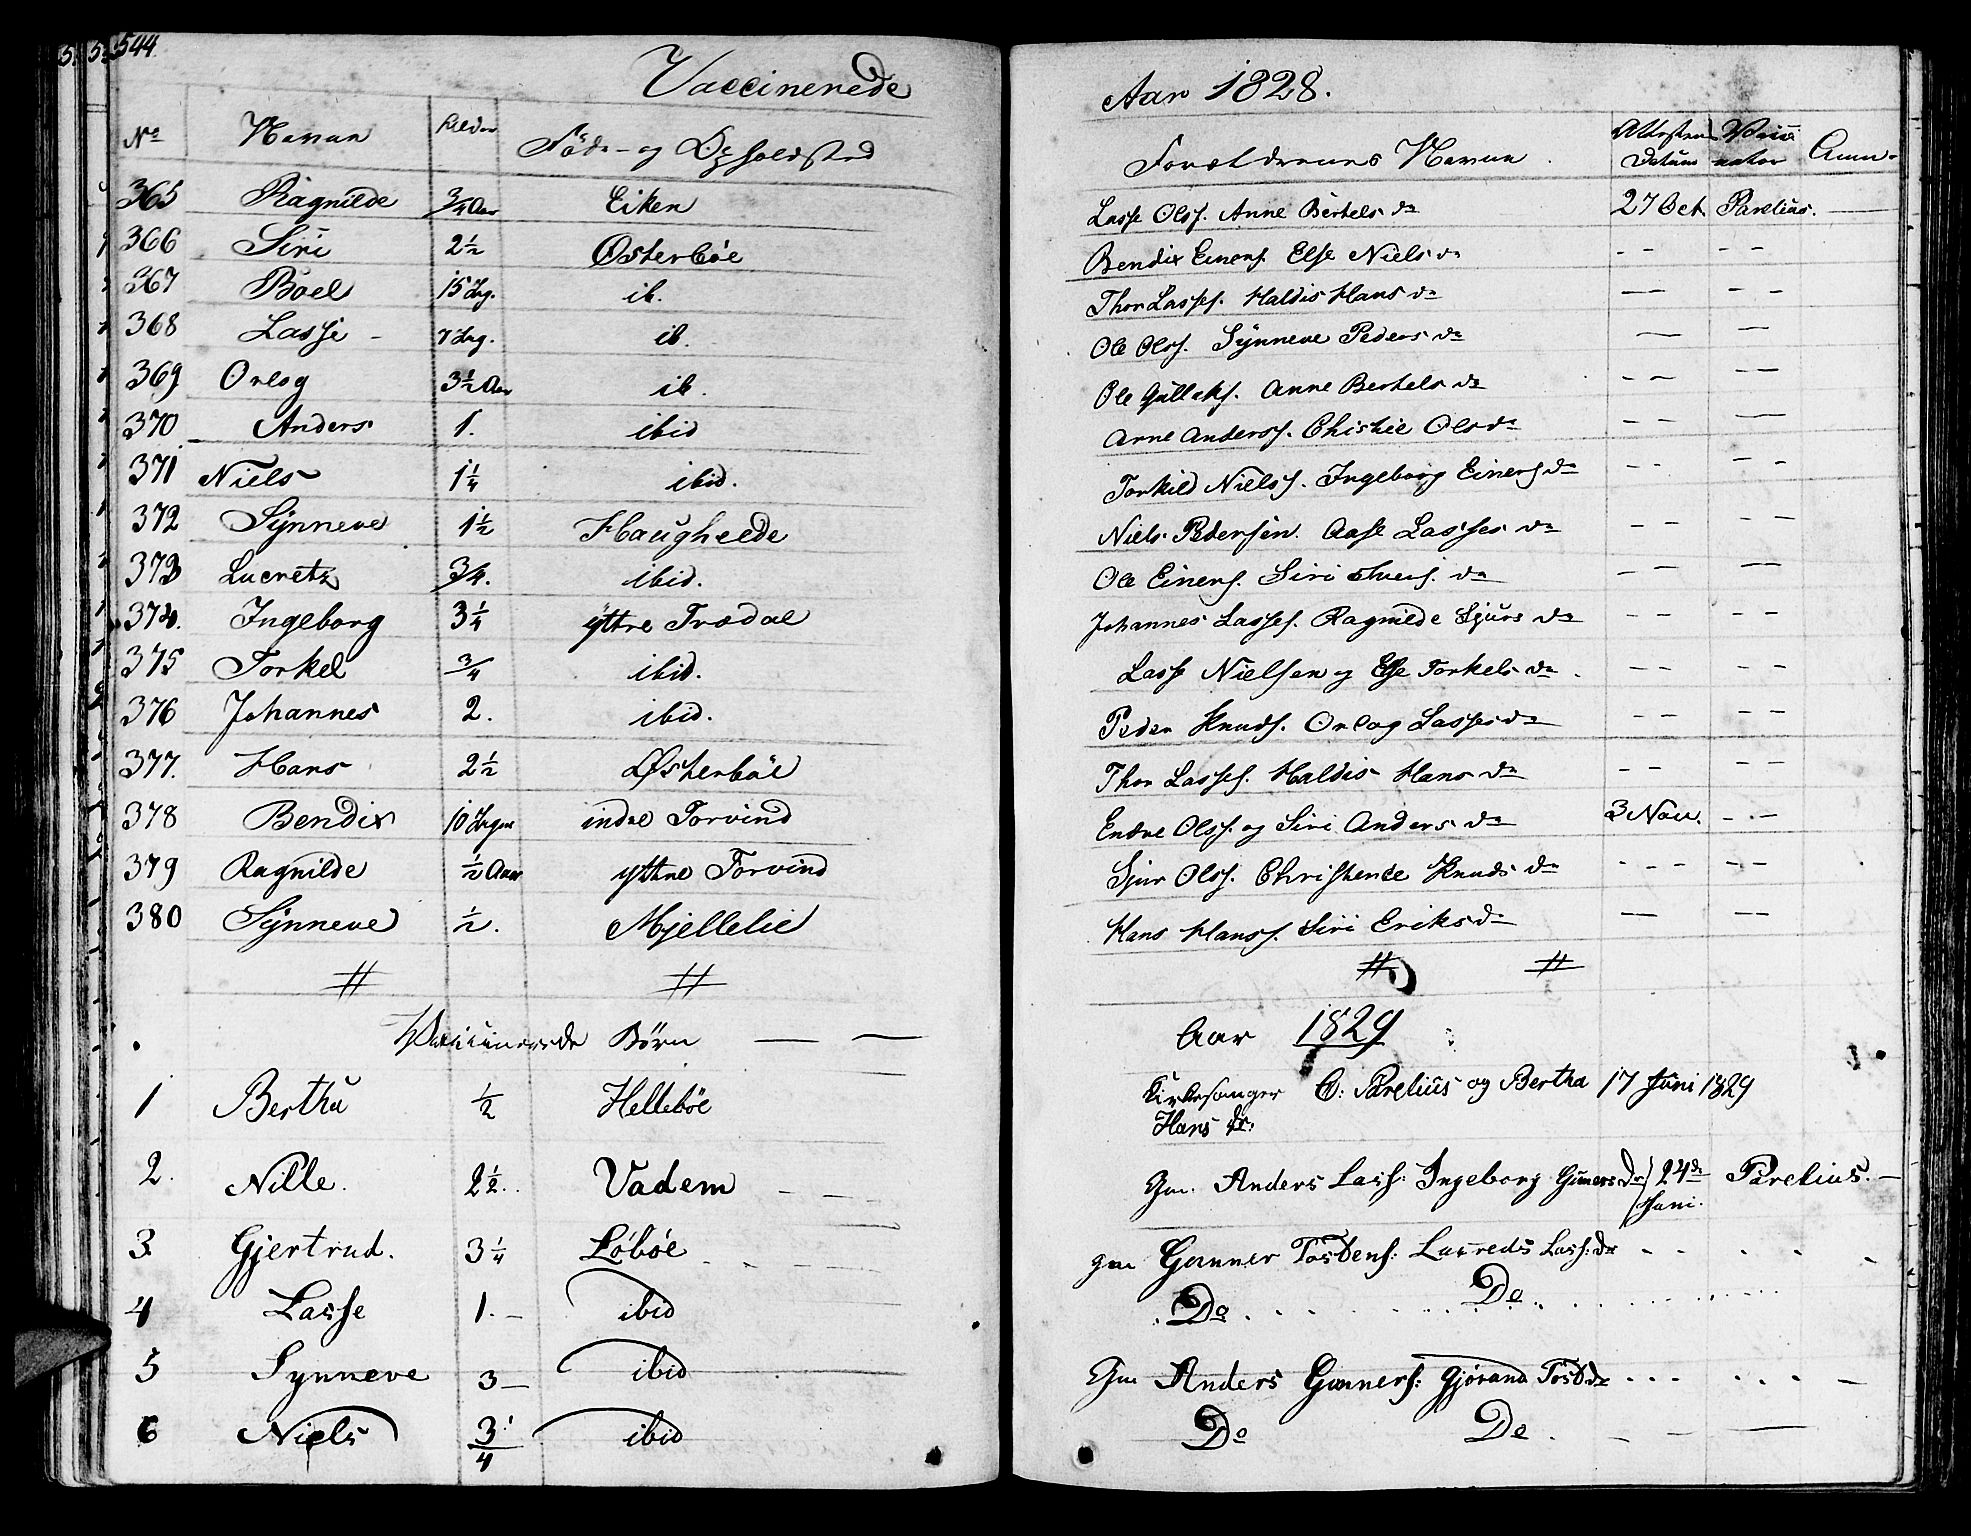 544.
Vaccinerede Aar 1828.
No Navne Alder Føde- og Opholdsted Forældrenes Navne Attestens Datum Vaccinator Anm.
365 Ragnilde 3/4 Aar Eiken Lasse Olss. Anne Bertels dr 27 Oct. Parelius. —
366 Siri 2 1/2 Østerbøe Bendix Einers. Else Niels dr - - - -
367 Boel 15 Ug. ib. Thor Lasses. Haldis Hans dr — - - -
368 Lasse - 7 Ug. ib. Ole Olss. Synneve Peders dr — - -
369 Orlog 3 1/2 Aar ib. Ole Gullaks. Anne Bertels dr - - - -
370 Anders 1. ibid Arne Anderss. Chistie Ols dr - - —
371 Niels 1 1/4 ibid. Torkild Nielss. Ingeborg Einers dr - - - -
372 Synneve 1 1/2 Haugheede Niels Pedersen. Aase Lasses dr - - - -
373 Lucretz 3/4. ibid. Ole Einers. Siri dr - - - -
374. Ingeborg 3 1/4 yttre Trædal Johannes Lasses. Ragnilde Sjurs dr - - - -
375 Torkel 3/4 ibid. Lasse Nielsen og Else Torkels dr - - - -
376 Johannes 2. ibid. Peder Knuds. Orlog Lasses dr - - - -
377. Hans 2 1/2 Østerbøe Thor Lasses. Haldis Hans dr - - - -
378 Bendix 10 Uger indre Torvind Endre Olss. og Siri Anders dr 3 Nov. - . -
379 Ragnilde 1/2 Aar yttre Torvind Sjur Olss. Christense Knuds dr - - - - -
380 Synneve 1/2. Mjellelie Hans Hanss. Siri Eriks dr — - -
# # # #
Vaccinerede Børn — — Aar 1829
1 Bertha 1/2 Hellebøe Kirkesanger C: Parelius og Bertha 17 Juni 1829
Hans dr.
2. Nille. 2 1/2. Vadem - - - Gm. Anders Lass: Ingeborg Gunners dr 24de Parelius. —
Juni.
3 Gjertrud. 3 1/4 Løbøe gm Gunner Tostens: Lucreds Lass: dr - - . . -
4 Lasse 1. — ibid Do Do
5 Synneve 3 — ibid Gm Anders Gunners: Gjørand Tost dr - - - . . . —
6 Niels 3/4 ibid Do De . - - —